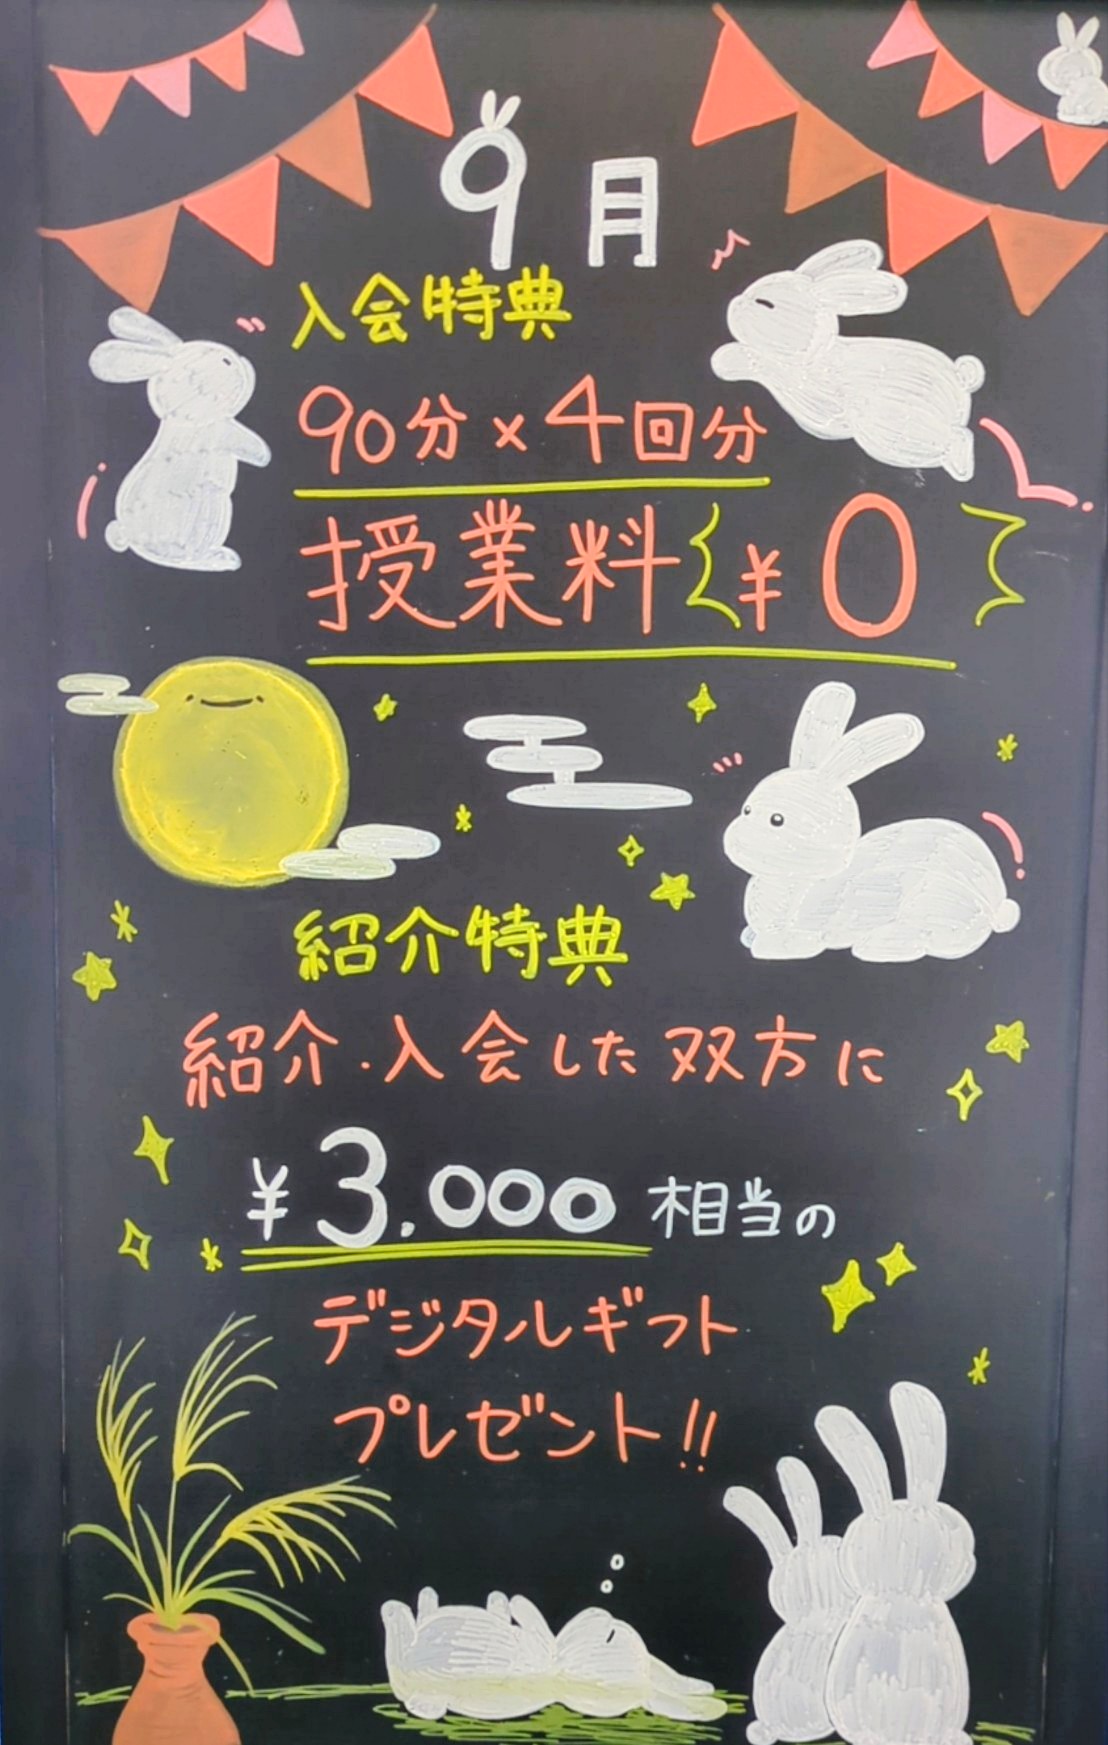 9月
入会特典
90分×4回分
授業料 ¥0
紹介特典
紹介・入会した双方に
¥3,000 相当の
デジタルギフト
プレゼント!!